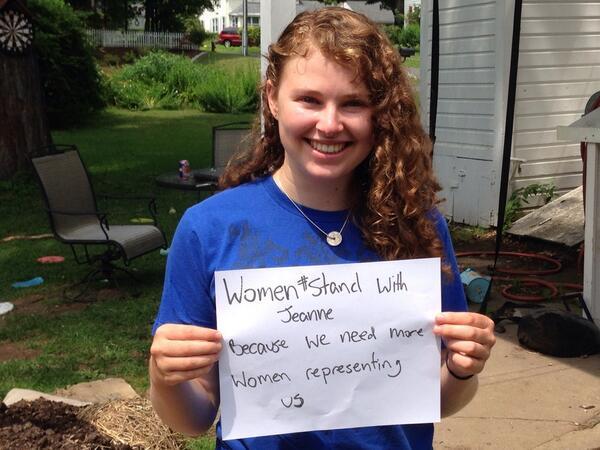 Women #Stand With
Jeanne
Because we need more
Women representing
us